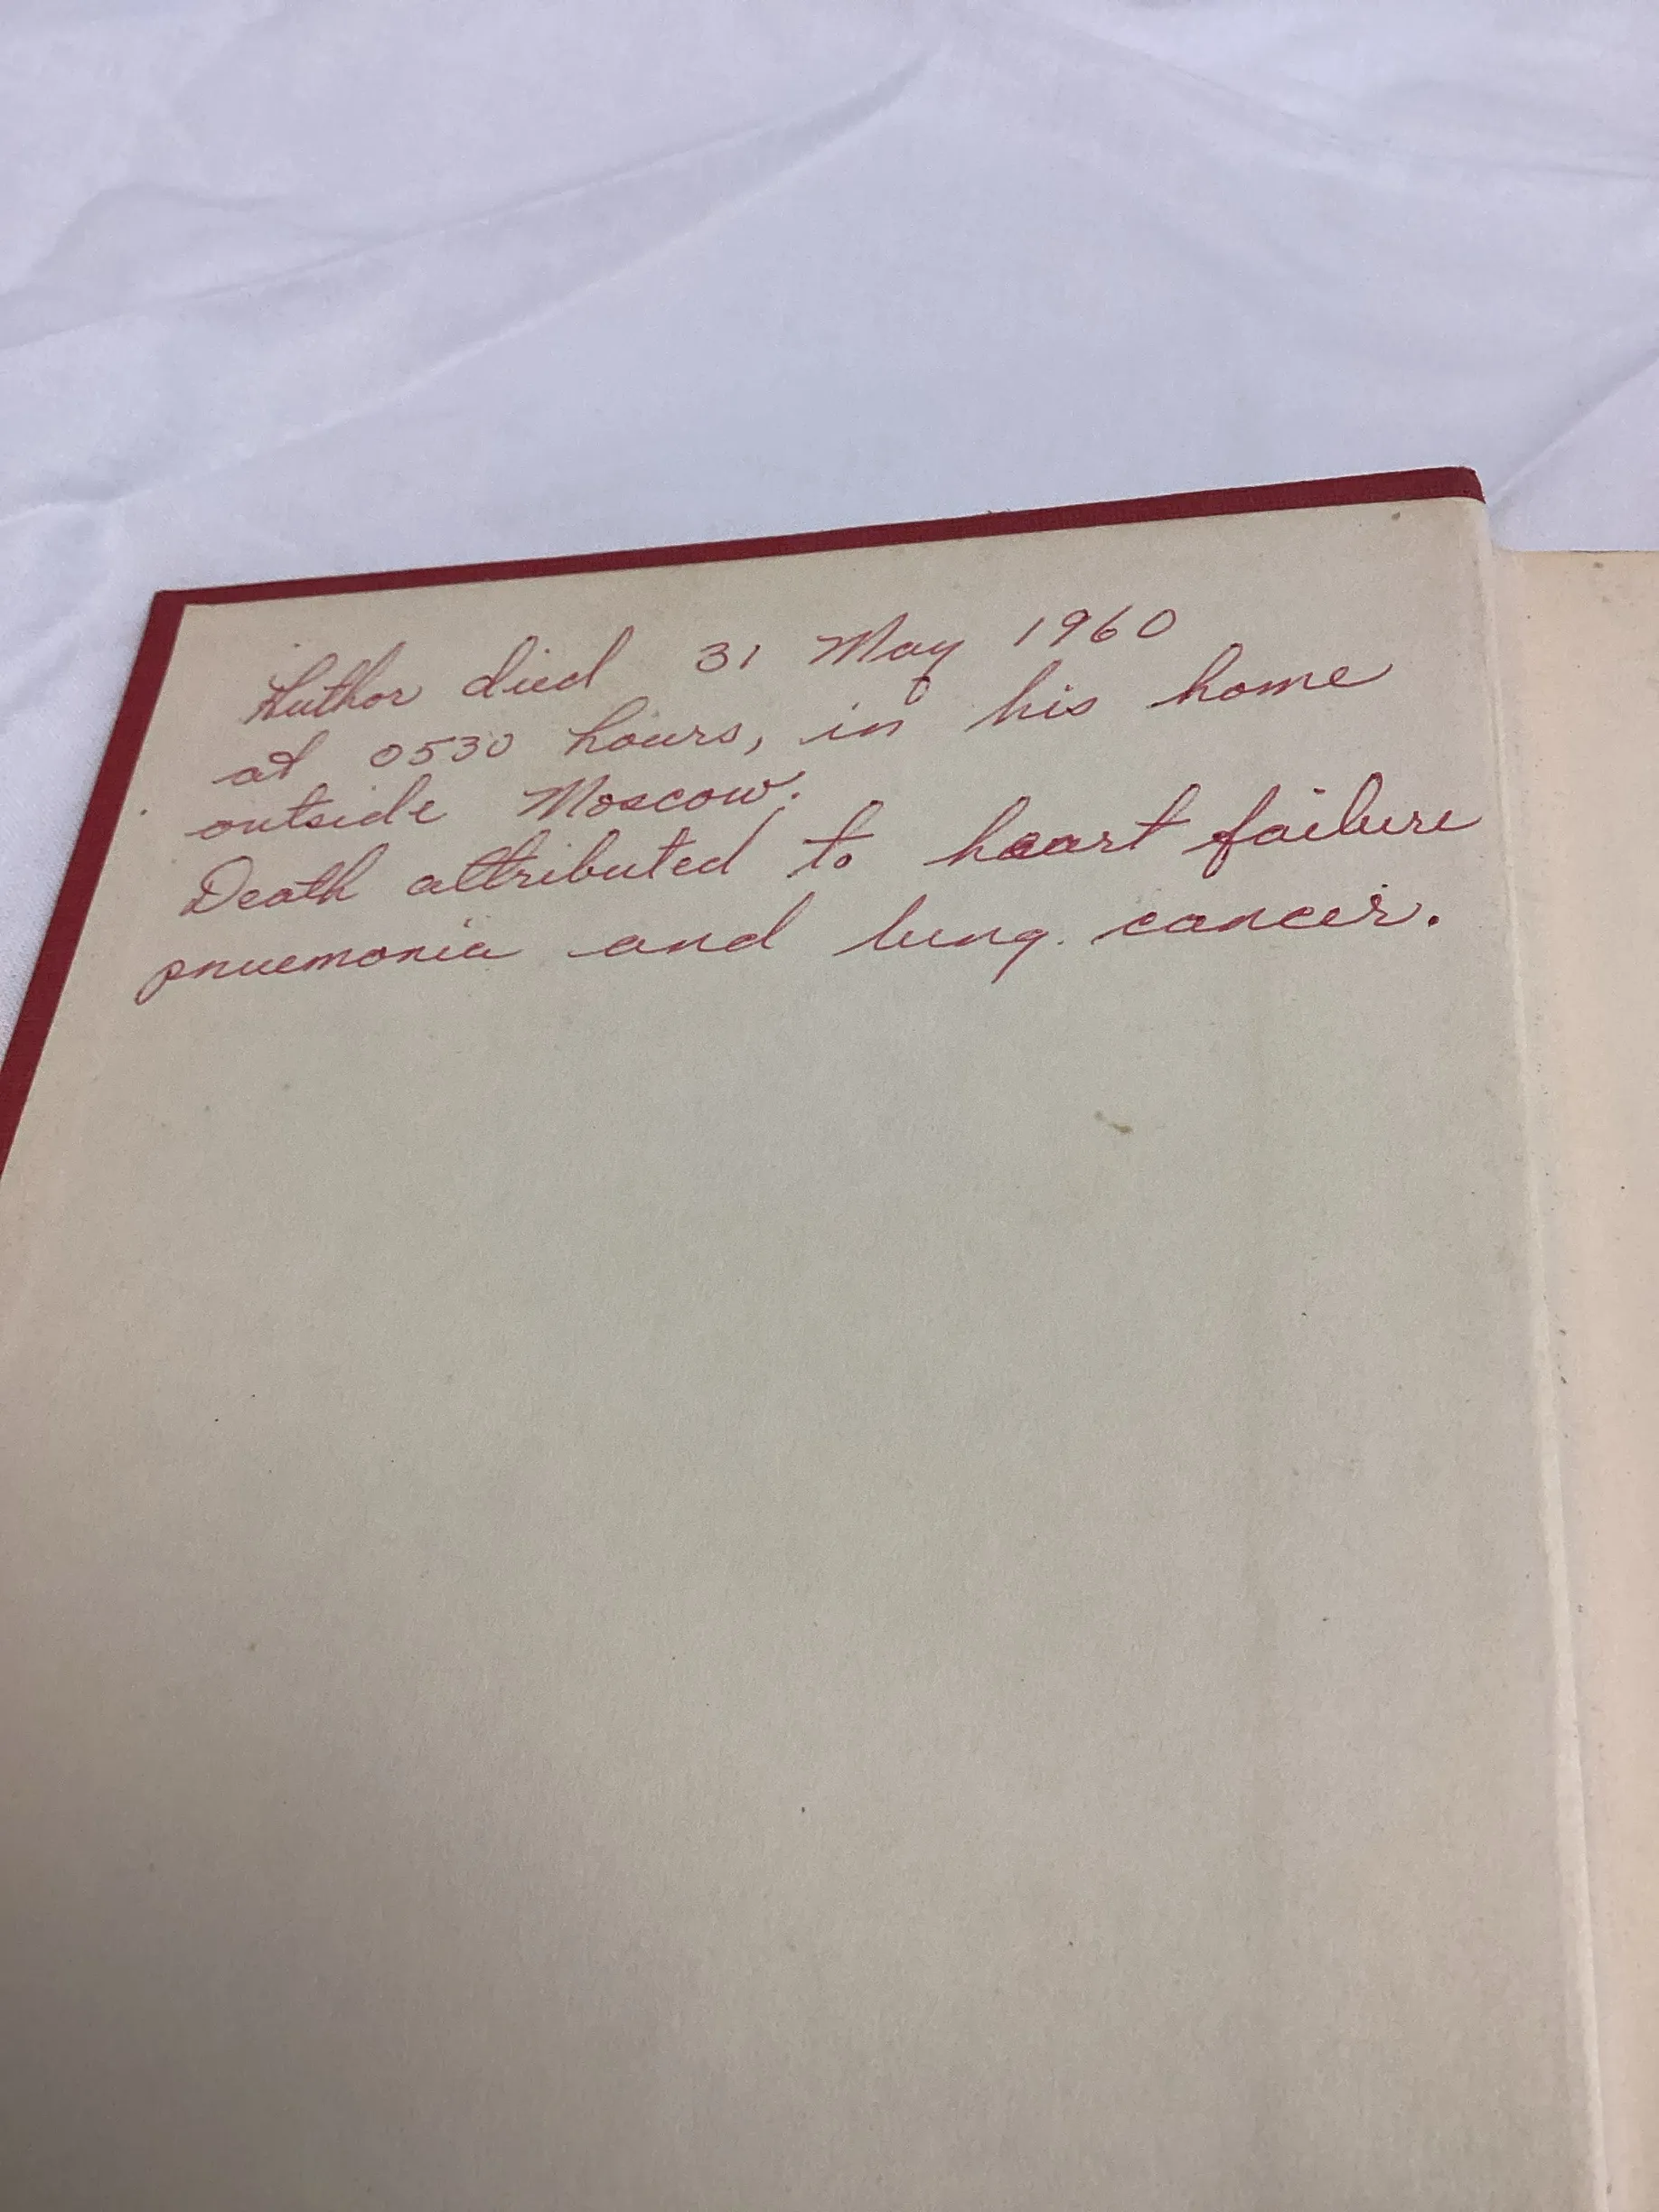 Author died 31 May 1960
at 0530 hours, in his home
outside Moscow.
Death attributed to heart failure
pnuemonia and lung cancer.